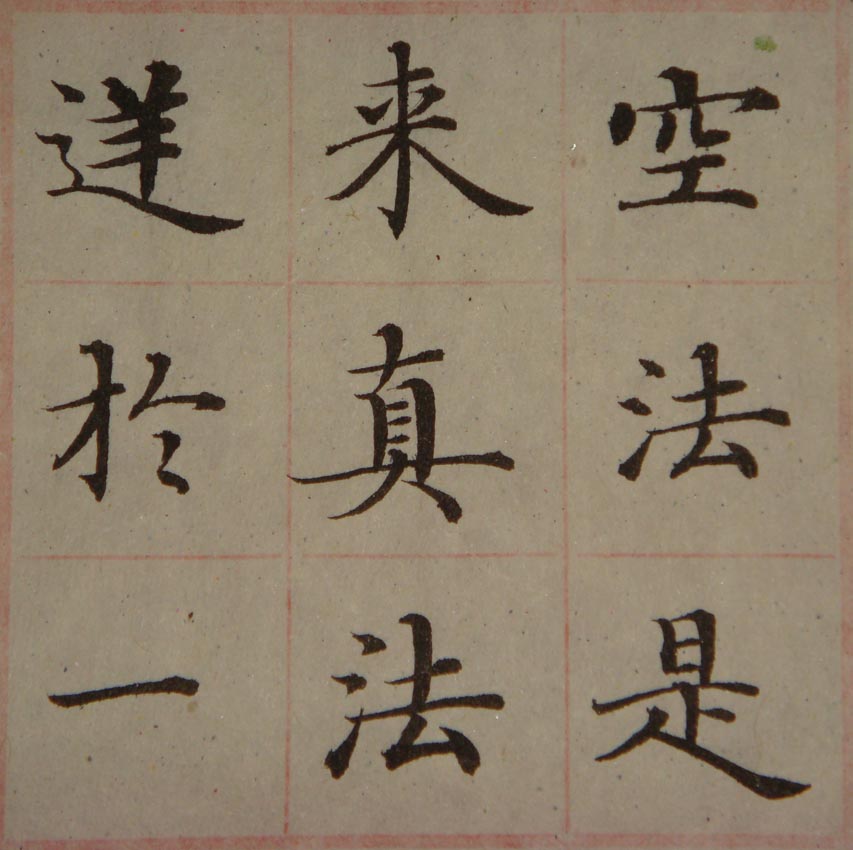 空法是
来真法
達於一